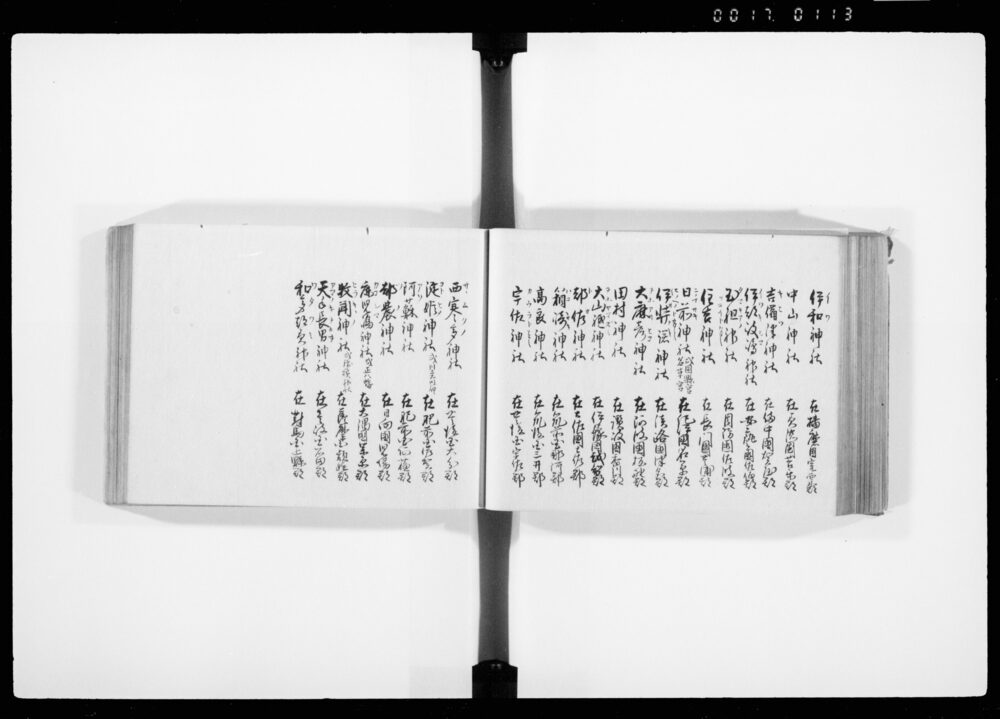 0017 0113
伊和神社 在播磨国宍粟郡
中山神社 在美作国苫東郡
吉備津神社 在備中国賀夜郡
伊都岐嶋神社 在安藝国佐伯郡
玉祖神社 在周防国佐波郡
住吉神社 在長門国豊浦郡
日前神社 或国縣宮 名草宮 在紀伊國名草郡
伊弉諾神社 在淡路國津名郡
大麻彦神社 在阿波國板野郡
田村神社 在讃岐国香川郡
大山積神社 在伊豫國越智郡
都佐神社 在土佐國土佐郡
筥崎神社 在筑前国那珂郡
高良神社 在筑後国三井郡
宇佐神社 在豊後国宇佐郡
西寒多神社 在豊後国大分郡
淀姫神社 在肥前国佐賀郡
阿蘇神社 在肥後国阿蘇郡
都農神社 在日向國児湯郡
鹿児嶋神社 或正八幡 在大隅國桑原郡
枚聞神社 在薩摩国頴娃郡
天手長男神社 在壱岐国石田郡
和多都美神社 在對馬国上縣郡